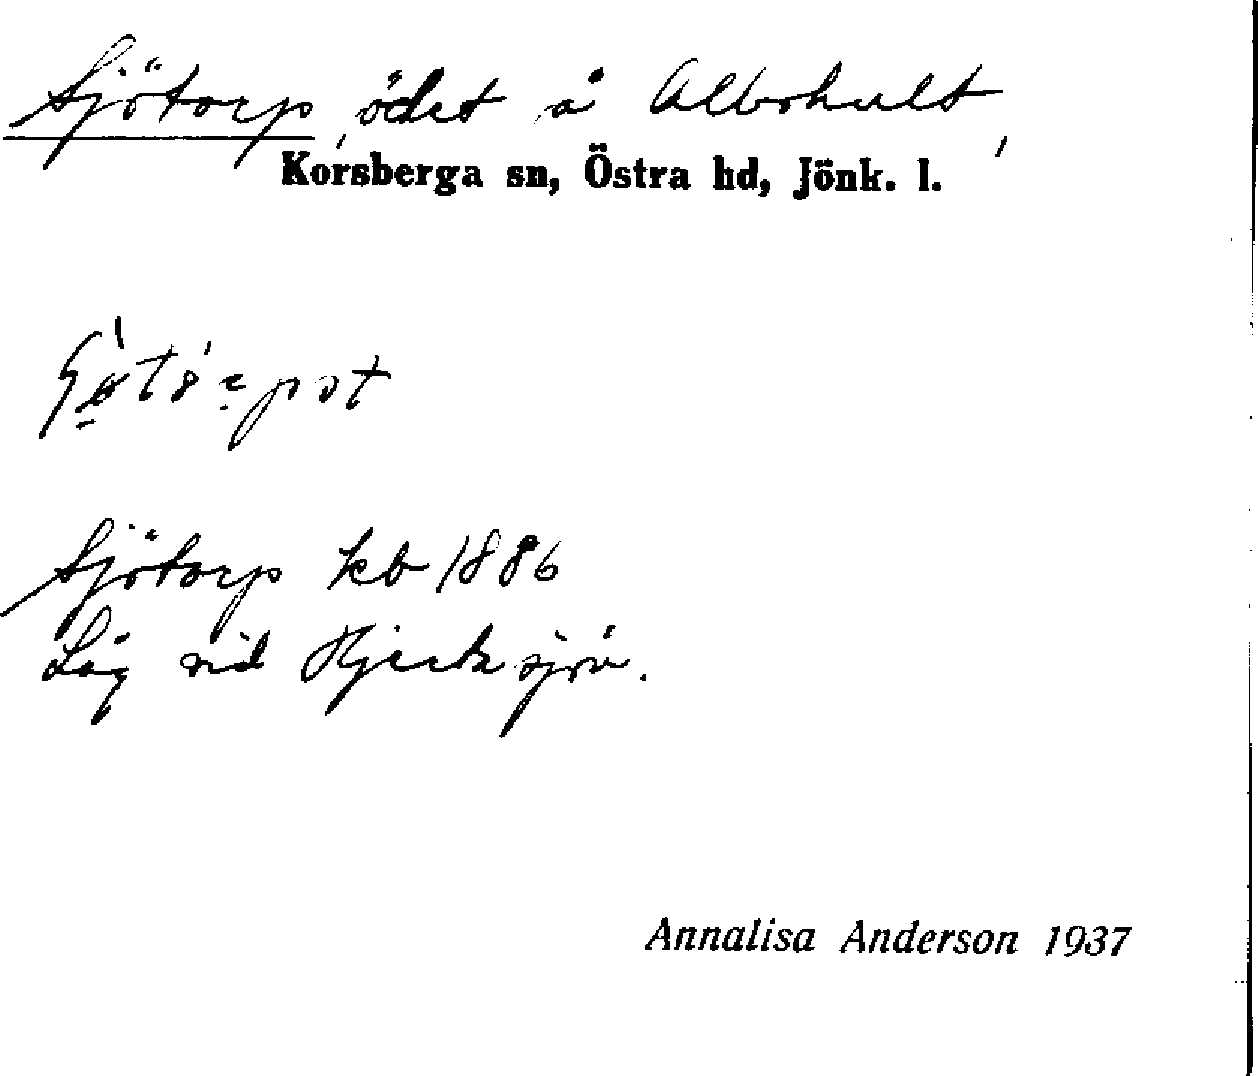 Sjötorp, ödet å Albohult,
Korsberga sn, Östra hd, Jönk. l.
Sjötorp kb 1886
Låg vid
Annalisa Anderson 1937